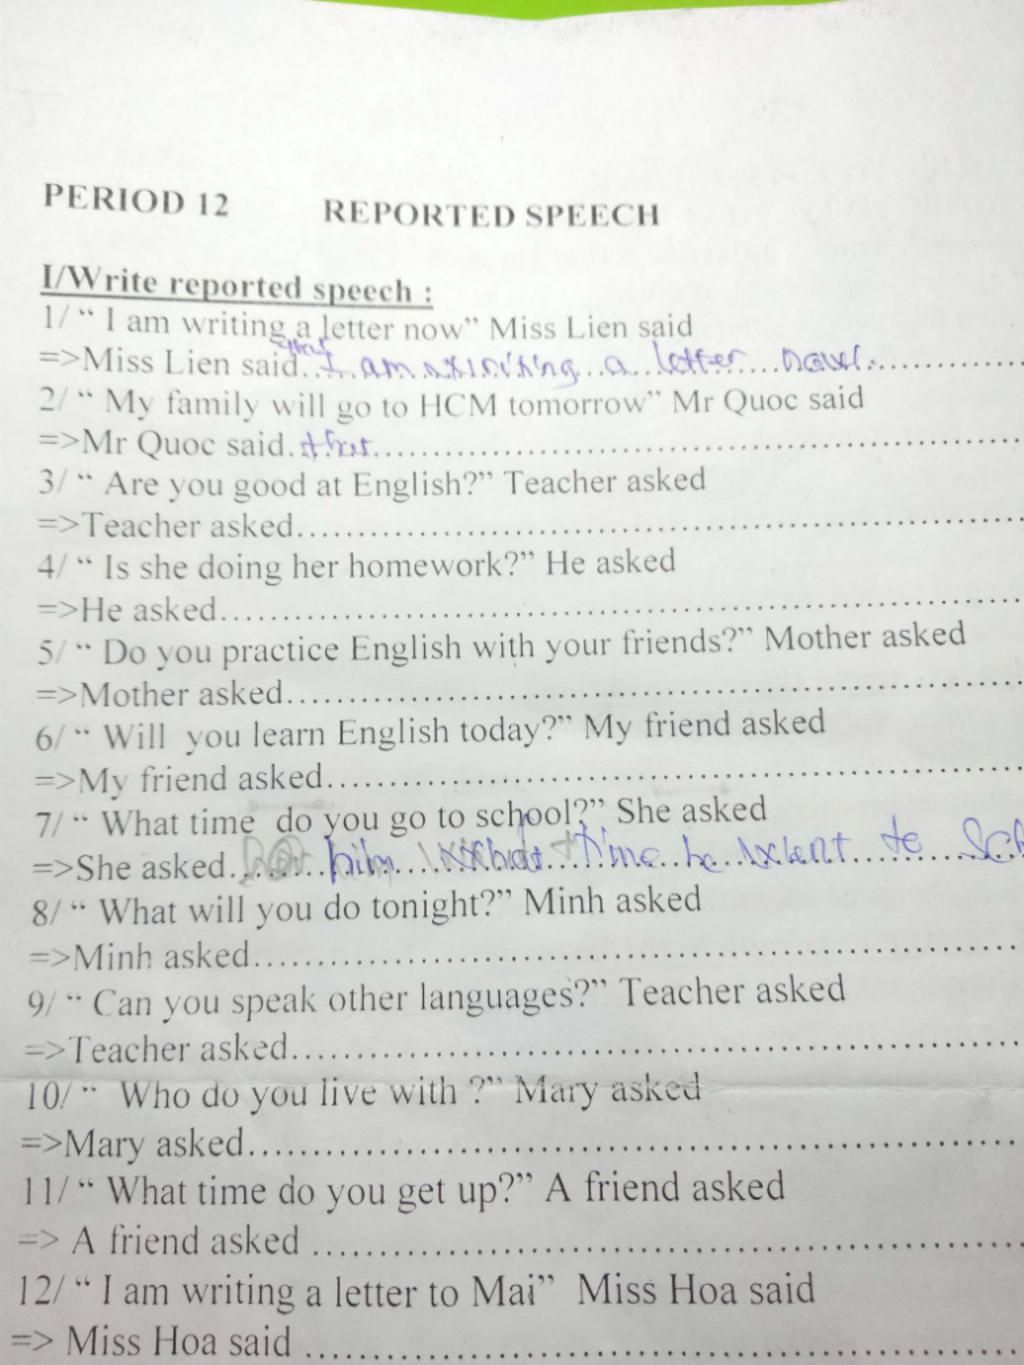 PERIOD 12 REPORTED SPEECH
I/Write reported speech :
1/ “ I am writing a letter now” Miss Lien said
=>Miss Lien said that I am writing a letter now.
2/ “ My family will go to HCM tomorrow” Mr Quoc said
=>Mr Quoc said. that
3/ “ Are you good at English?” Teacher asked
=>Teacher asked
4/ “ Is she doing her homework?” He asked
=>He asked
5/ “ Do you practice English with your friends?” Mother asked
=>Mother asked
6/ “ Will you learn English today?” My friend asked
=>My friend asked
7/ “ What time do you go to school?” She asked
=>She asked him what time he went to Sch
8/ “ What will you do tonight?” Minh asked
=>Minh asked
9/ “ Can you speak other languages?” Teacher asked
=>Teacher asked
10/ “ Who do you live with ?” Mary asked
=>Mary asked
11/ “ What time do you get up?” A friend asked
=> A friend asked
12/ “ I am writing a letter to Mai” Miss Hoa said
=> Miss Hoa said